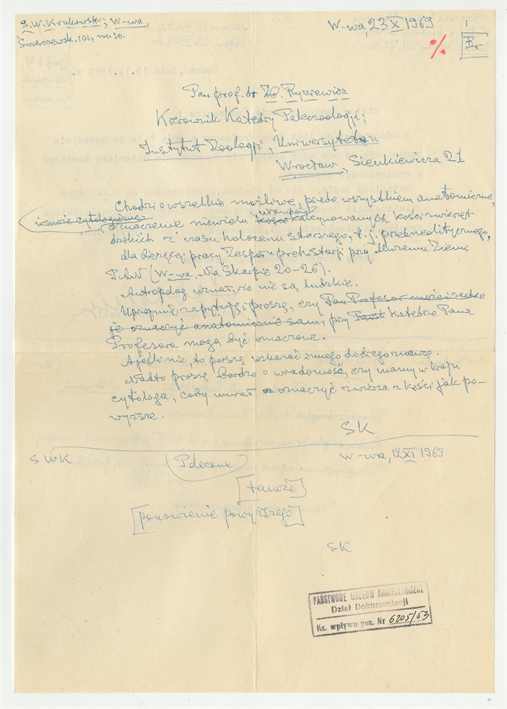 S.W. Krukowski; W-wa,
Świerczewsk. 101, m. 10.
W-wa 23 X 1969
%
Pan prof. dr Zb. Ryziewicz
Kierownik Katedry Paleozoologii;
Instytut Zoologii, Uniwersytetu
Wrocław, Sienkiewicza 21
Chodzi o wszelkie możliwe, przede wszystkiem anatomiczne,
i może cytologiczne
oznaczenie niewielu kości kalcynowanych kości zwierzę-
dzkich z czasu holocenu starszego, t. j. przedneolitycznego,
dla bieżącej pracy Zespołu prehistorii przy Muzeum Ziemi
PAN (W-wa, Na Skarpie 20-26).
Antropolog uznał, że nie są ludzkie.
Uprzejmie zapytuję i proszę, czy Pan Profesor
je oznaczyć anatomicznie sam, przy Katedrze Pana
Profesora mogą być oznaczone.
A jeśli nie, to proszę wskazać innego dobrego znawcę.
Nadto proszę bardzo o wiadomość, czy mamy w kraju
cytologa, coby umiał oznaczyć zwierza z kości jak po-
wyższe.
SK
SWK
Polecone
W-wa, 12 XI 1969
[tamże]
[ponowienie powyższego]
SK
PAŃSTWOWE MUZEUM ARCHEOLOGICZNE
Dział Dokumentacji
Ks. wpływu poz. Nr 6205/53